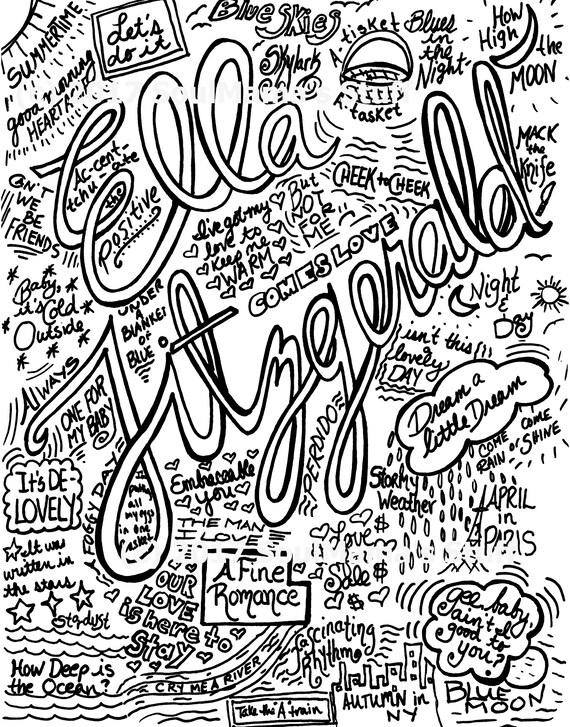 SUMMERTIME
Let's
do it
Blue Skies
Skylark
A-tisket
A-Tasket
Blues
in
the
Night
How
High
the
MOON
good morning
HEARTACHE
Ella
Fitzgerald
Ac-cent-
tchu-ate
the
Positive
MACK
the
Knife
CHEEK to CHEEK
CAN'T
WE
BE
FRIENDS
I've got my
love to
keep me
WARM
But
NOT
FOR
ME
COMES LOVE
Baby,
it's Cold
Outside
UNDER
A
BLANKET
OF
BLUE
Night
&
Day
isn't this
a
lovely
DAY
ALWAYS
ONE FOR
MY BABY
Dream a
little Dream
COME
RAIN or
COME
SHINE
PERDIDO
It's DE-
LOVELY
A FOGGY DAY
all
my eggs
in one
basket
Embraceable
you
THE MAN
I LOVE
Stormy
Weather
APRIL
in
PARIS
It was
written in
the stars
Stardust
OUR
LOVE
is here to
Stay
A Fine
Romance
Love
for
Sale
gee, baby,
ain't I
good to
you?
BLUE
MOON
How Deep is
the Ocean?
CRY ME A RIVER
Fascinating
Rhythm
Take the 'A' train
AUTUMN in
NY